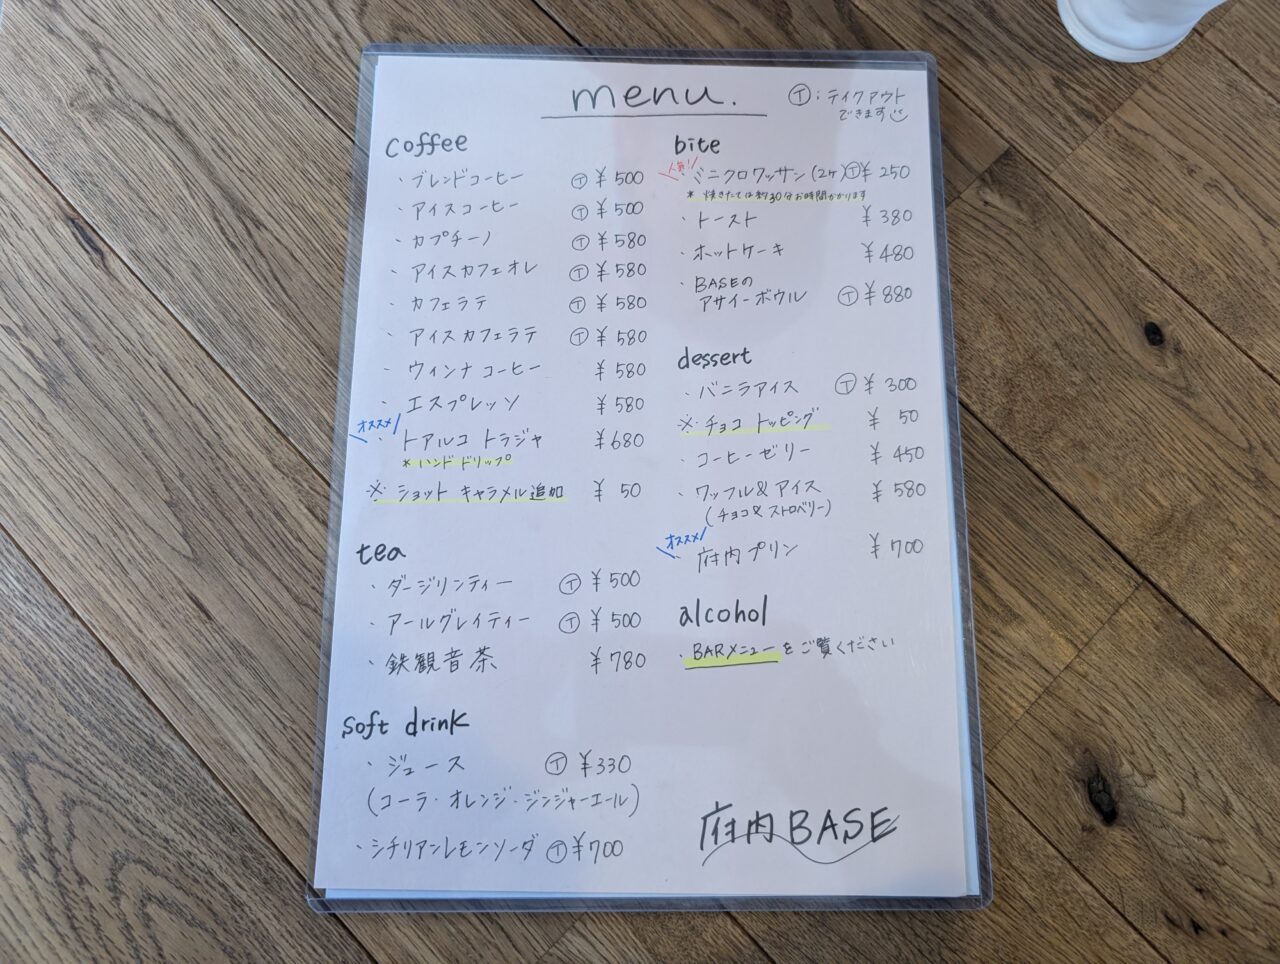 menu.
Ⓣ:テイクアウト
できます
coffee
・ブレンドコーヒー Ⓣ ¥500
・アイスコーヒー Ⓣ ¥500
・カプチーノ Ⓣ ¥580
・アイスカフェオレ Ⓣ ¥580
・カフェラテ Ⓣ ¥580
・アイスカフェラテ Ⓣ ¥580
・ウィンナコーヒー ¥580
・エスプレッソ ¥580
オススメ!
・トアルコ トラジャ ¥680
*ハンドドリップ
※ ショット キャラメル追加 ¥50
tea
・ダージリンティー Ⓣ ¥500
・アールグレイティー Ⓣ ¥500
・鉄観音茶 ¥780
soft drink
・ジュース Ⓣ ¥330
(コーラ・オレンジ・ジンジャーエール)
・シチリアンレモンソーダ Ⓣ ¥700
bite
人気!
・ミニクロワッサン(2ヶ) Ⓣ ¥250
* 焼きたては約30分お時間かかります
・トースト ¥380
・ホットケーキ ¥480
・BASEの
アサイーボウル Ⓣ ¥880
dessert
・バニラアイス Ⓣ ¥300
※ チョコ トッピング ¥50
・コーヒーゼリー ¥450
・ワッフル&アイス ¥580
(チョコ&ストロベリー)
オススメ!
・府内プリン ¥700
alcohol
・BARメニューをご覧ください
府内BASE